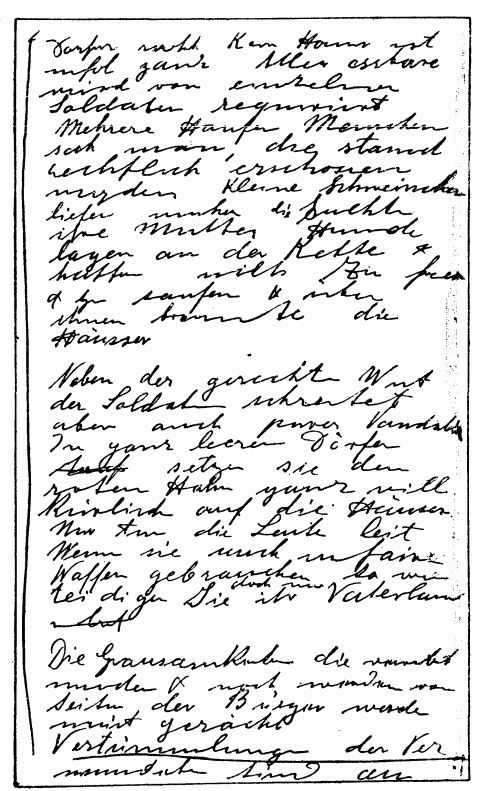 Dörfer nicht Kein Haus ist
mehr ganz Alles essbare
wird von einzelnen
Soldaten requiriert
Mehrere Haufen Menschen
sah man, die stand
rechtlich erschossen
wurden Kleine Schweinchen
liefen umher & suchten
ihre Mutter Hunde
lagen an der Kette &
hatten nichts zu fres
& zu saufen & über
ihnen brannte die
Häusser
Neben der gerechten Wut
der Soldaten schreitet
aber auch purer Vandalis
In ganz leeren Dörfer
setzen sie den
roten Hahn ganz will
kürlich auf die Häuser
Mir tun die Leute leit
Wenn sie auch unfaire
Waffen gebrauchen so ver
teidigen Sie doch nur ihr Vaterlan
Die Grausamkeiten die verübt
wurden & noch werden von
Seiten der Bürger werde
wüst gerächt
Vertümmlungen der Ver
wundeten sind an